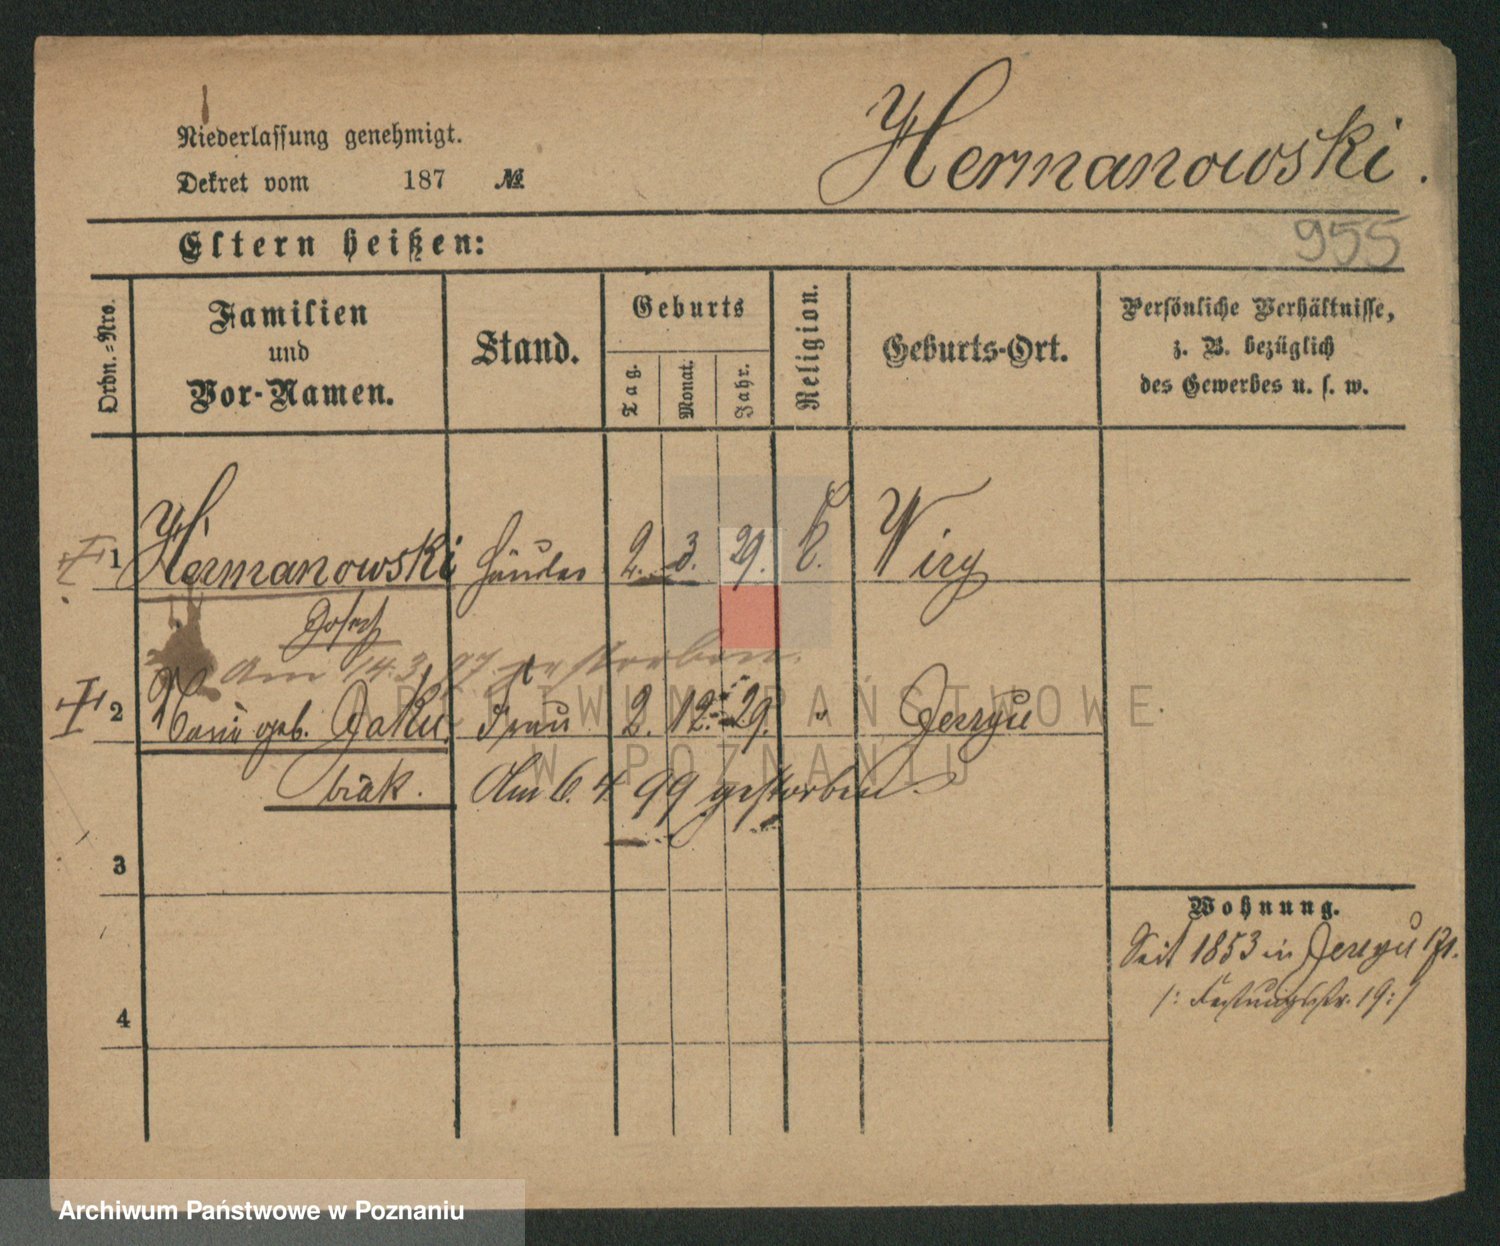 Hermanowski.
Niederlassung genehmigt.
Dekret vom 187 №
955
Eltern heißen:
Ordn.=Nro.
Familien
und
Vor-Namen.
Stand.
Geburts
Tag.
Monat.
Jahr.
Religion.
Geburts-Ort.
Persönliche Verhältnisse,
z. B. bezüglich
des Gewerbes u. s. w.
1 Hermanowski 2. 3. 29. K. Wiry
Josef
Am 14.3.97. gestorben.
2 geb. Jaku Frau 2. 12. 29. " Jerzyce
biak. Am 6. 4 99 gestorben.
3
Wohnung.
Seit 1853 in
/: Festungsstr. 19 :/
4
ARCHIWUM PAŃSTWOWE
W POZNANIU
Archiwum Państwowe w Poznaniu